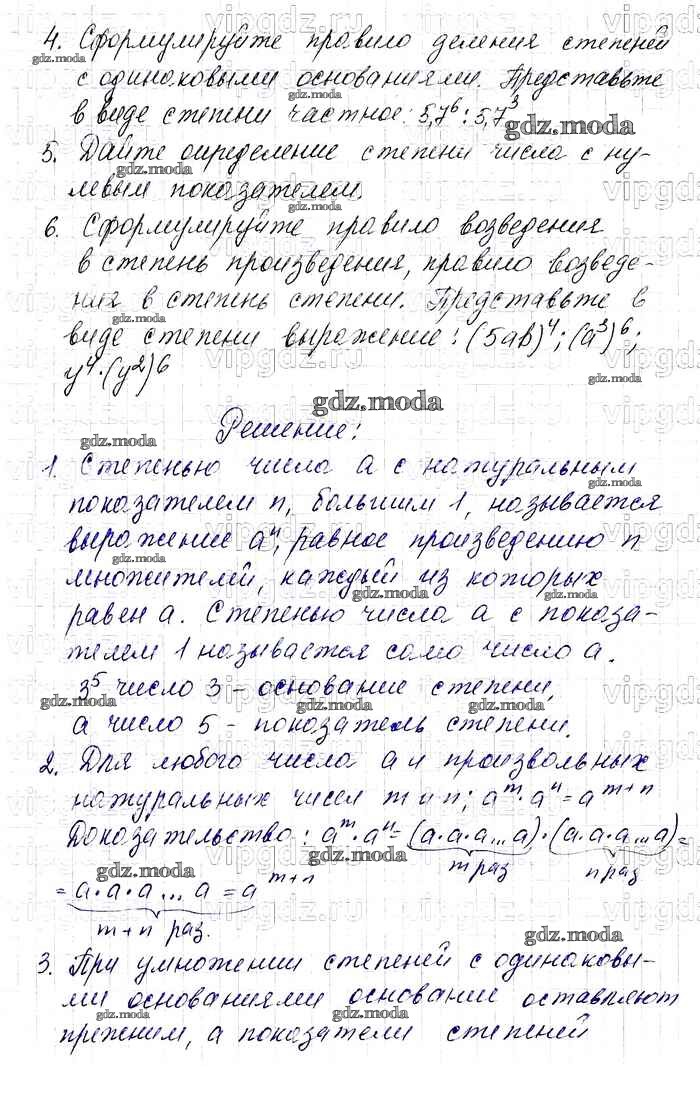 4. Сформулируйте правило деления степеней
с одинаковыми основаниями. Представьте
в виде степени частное: 5,7⁶ : 5,7³
5. Дайте определение степени числа с ну-
левым показателем.
6. Сформулируйте правило возведения
в степень произведения, правило возведе-
ния в степень степени. Представьте в
виде степени выражение: (5ab)⁴; (a³)⁶;
y⁴·(y²)⁶
Решение:
1. Степенью числа a с натуральным
показателем n, большим 1, называется
выражение aⁿ, равное произведению n
множителей, каждый из которых
равен a. Степенью числа a с показа-
телем 1 называется само число a.
3⁵ число 3 – основание степени,
а число 5 – показатель степени.
2. Для любого числа a и произвольных
натуральных чисел m и n; aᵐ·aⁿ=aᵐ⁺ⁿ
Доказательство: aᵐ·aⁿ=(a·a·a...a)·(a·a·a...a)=
m раз n раз
=a·a·a...a=aᵐ⁺ⁿ
m+n раз.
3. При умножении степеней с одинаковы-
ми основаниями основание оставляют
прежним, а показатели степеней
gdz.moda
vipgdz.ru